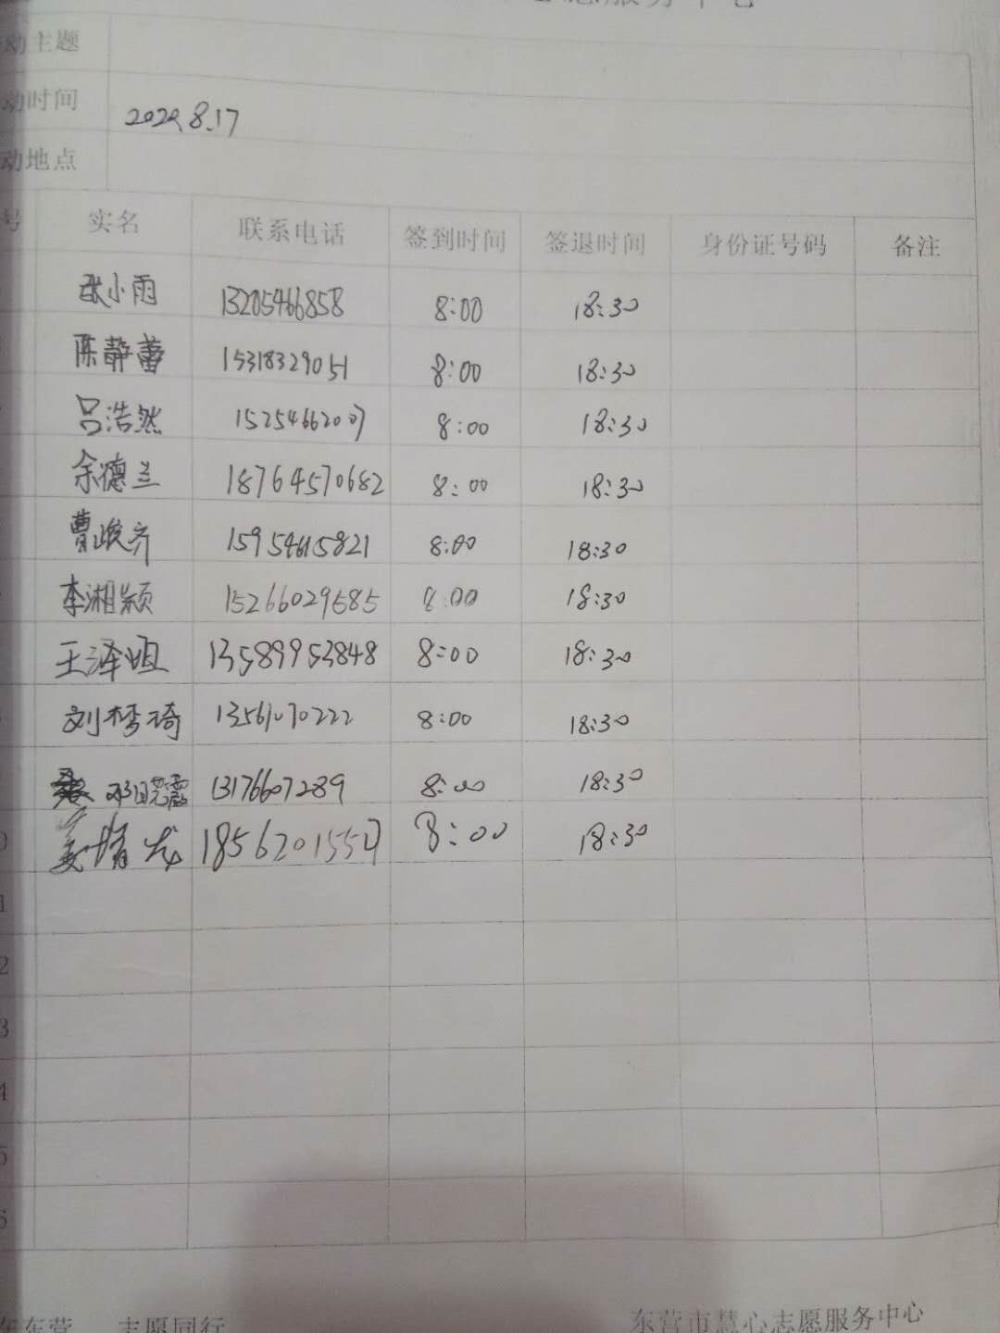 志愿服务中心
动主题
动时间 2022.8.17
动地点
号 实名 联系电话 签到时间 签退时间 身份证号码 备注
张小雨 13205466858 8:00 18:30
陈静蕾 15318329051 8:00 18:30
吕浩然 8:00 18:30
余德兰 18764570682 8:00 18:30
曹峻齐 15954615821 8:00 18:30
李湘颖 15266029585 8:00 18:30
王泽坦 13589953848 8:00 18:30
刘梦琦 13561070222 8:00 18:30
邓晓震 13176607289 8:00 18:30
姜靖龙 8:00 18:30
东营 志愿同行
东营市慧心志愿服务中心